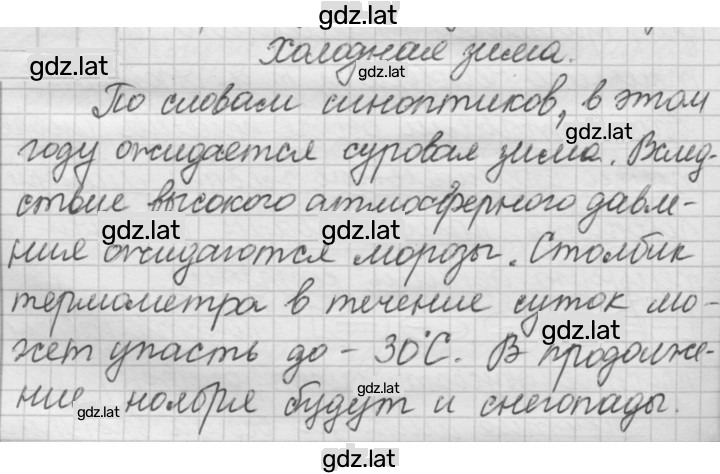 gdz.lat
Холодная зима.
gdz.lat
gdz.lat
По словам синоптиков, в этом
gdz.lat
году ожидается суровая зима. Вслед-
ствие высокого атмосферного давле-
gdz.lat gdz.lat gdz.lat
ния ожидаются морозы. Столбик
термометра в течение суток мо-
gdz.lat
жет упасть до - 30°С. В продолже-
gdz.lat
ние ноября будут и снегопады.
gdz.lat
gdz.lat